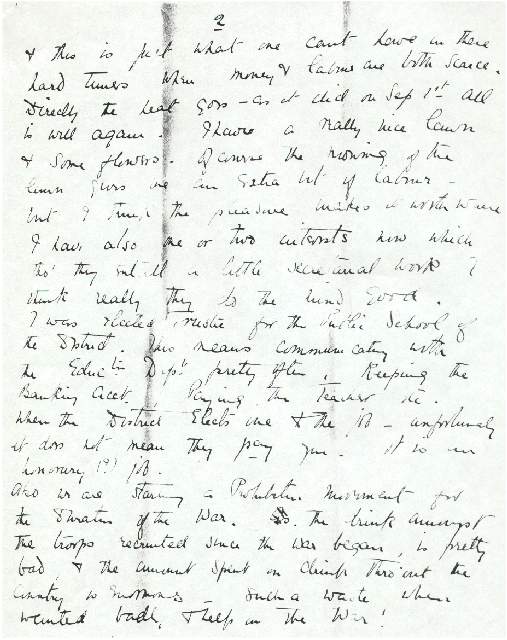 2
& this is just what one can't have in these
hard times when money & labour are both scarce.
Directly the heat goes – as it did on Sep 1st all
is well again. I have a really nice lawn
& some flowers. Of course the mowing of the
lawn gives me an extra bit of labour –
but I think the pleasure makes it worth while
I have also one or two interests now which
tho' they entail a little secretarial work I
think really they do the mind good.
I was elected Trustee for the Public School of
the District. This means communicating with
the Educ'tn Dept pretty often, Keeping the
Banking acct., Paying the Teacher etc.
When the District Elects one to the job – unfortunately
it does not mean they pay you. It is an
honorary (?) job.
Also we are starting a Prohibition Movement for
the Duration of the War. The drink amongst
the troops recruited since the War began, is pretty
bad, & the amount spent on drink thro'out the
Country is enormous – Such a waste when
wanted badly to help in the War!